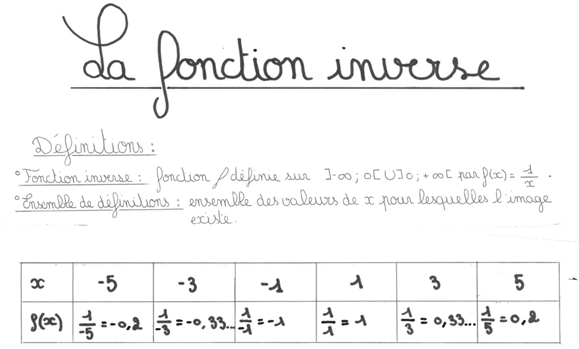 La fonction inverse
Définitions :
° Fonction inverse : fonction f définie sur ]-∞ ; 0[ U ]0 ; +∞[ par f(x) = 1/x .
° Ensemble de définitions : ensemble des valeurs de x pour lesquelles l'image
existe.
x -5 -3 -1 1 3 5
f(x) 1/-5 = -0,2 1/-3 = -0,33... 1/-1 = -1 1/1 = 1 1/3 = 0,33... 1/5 = 0,2